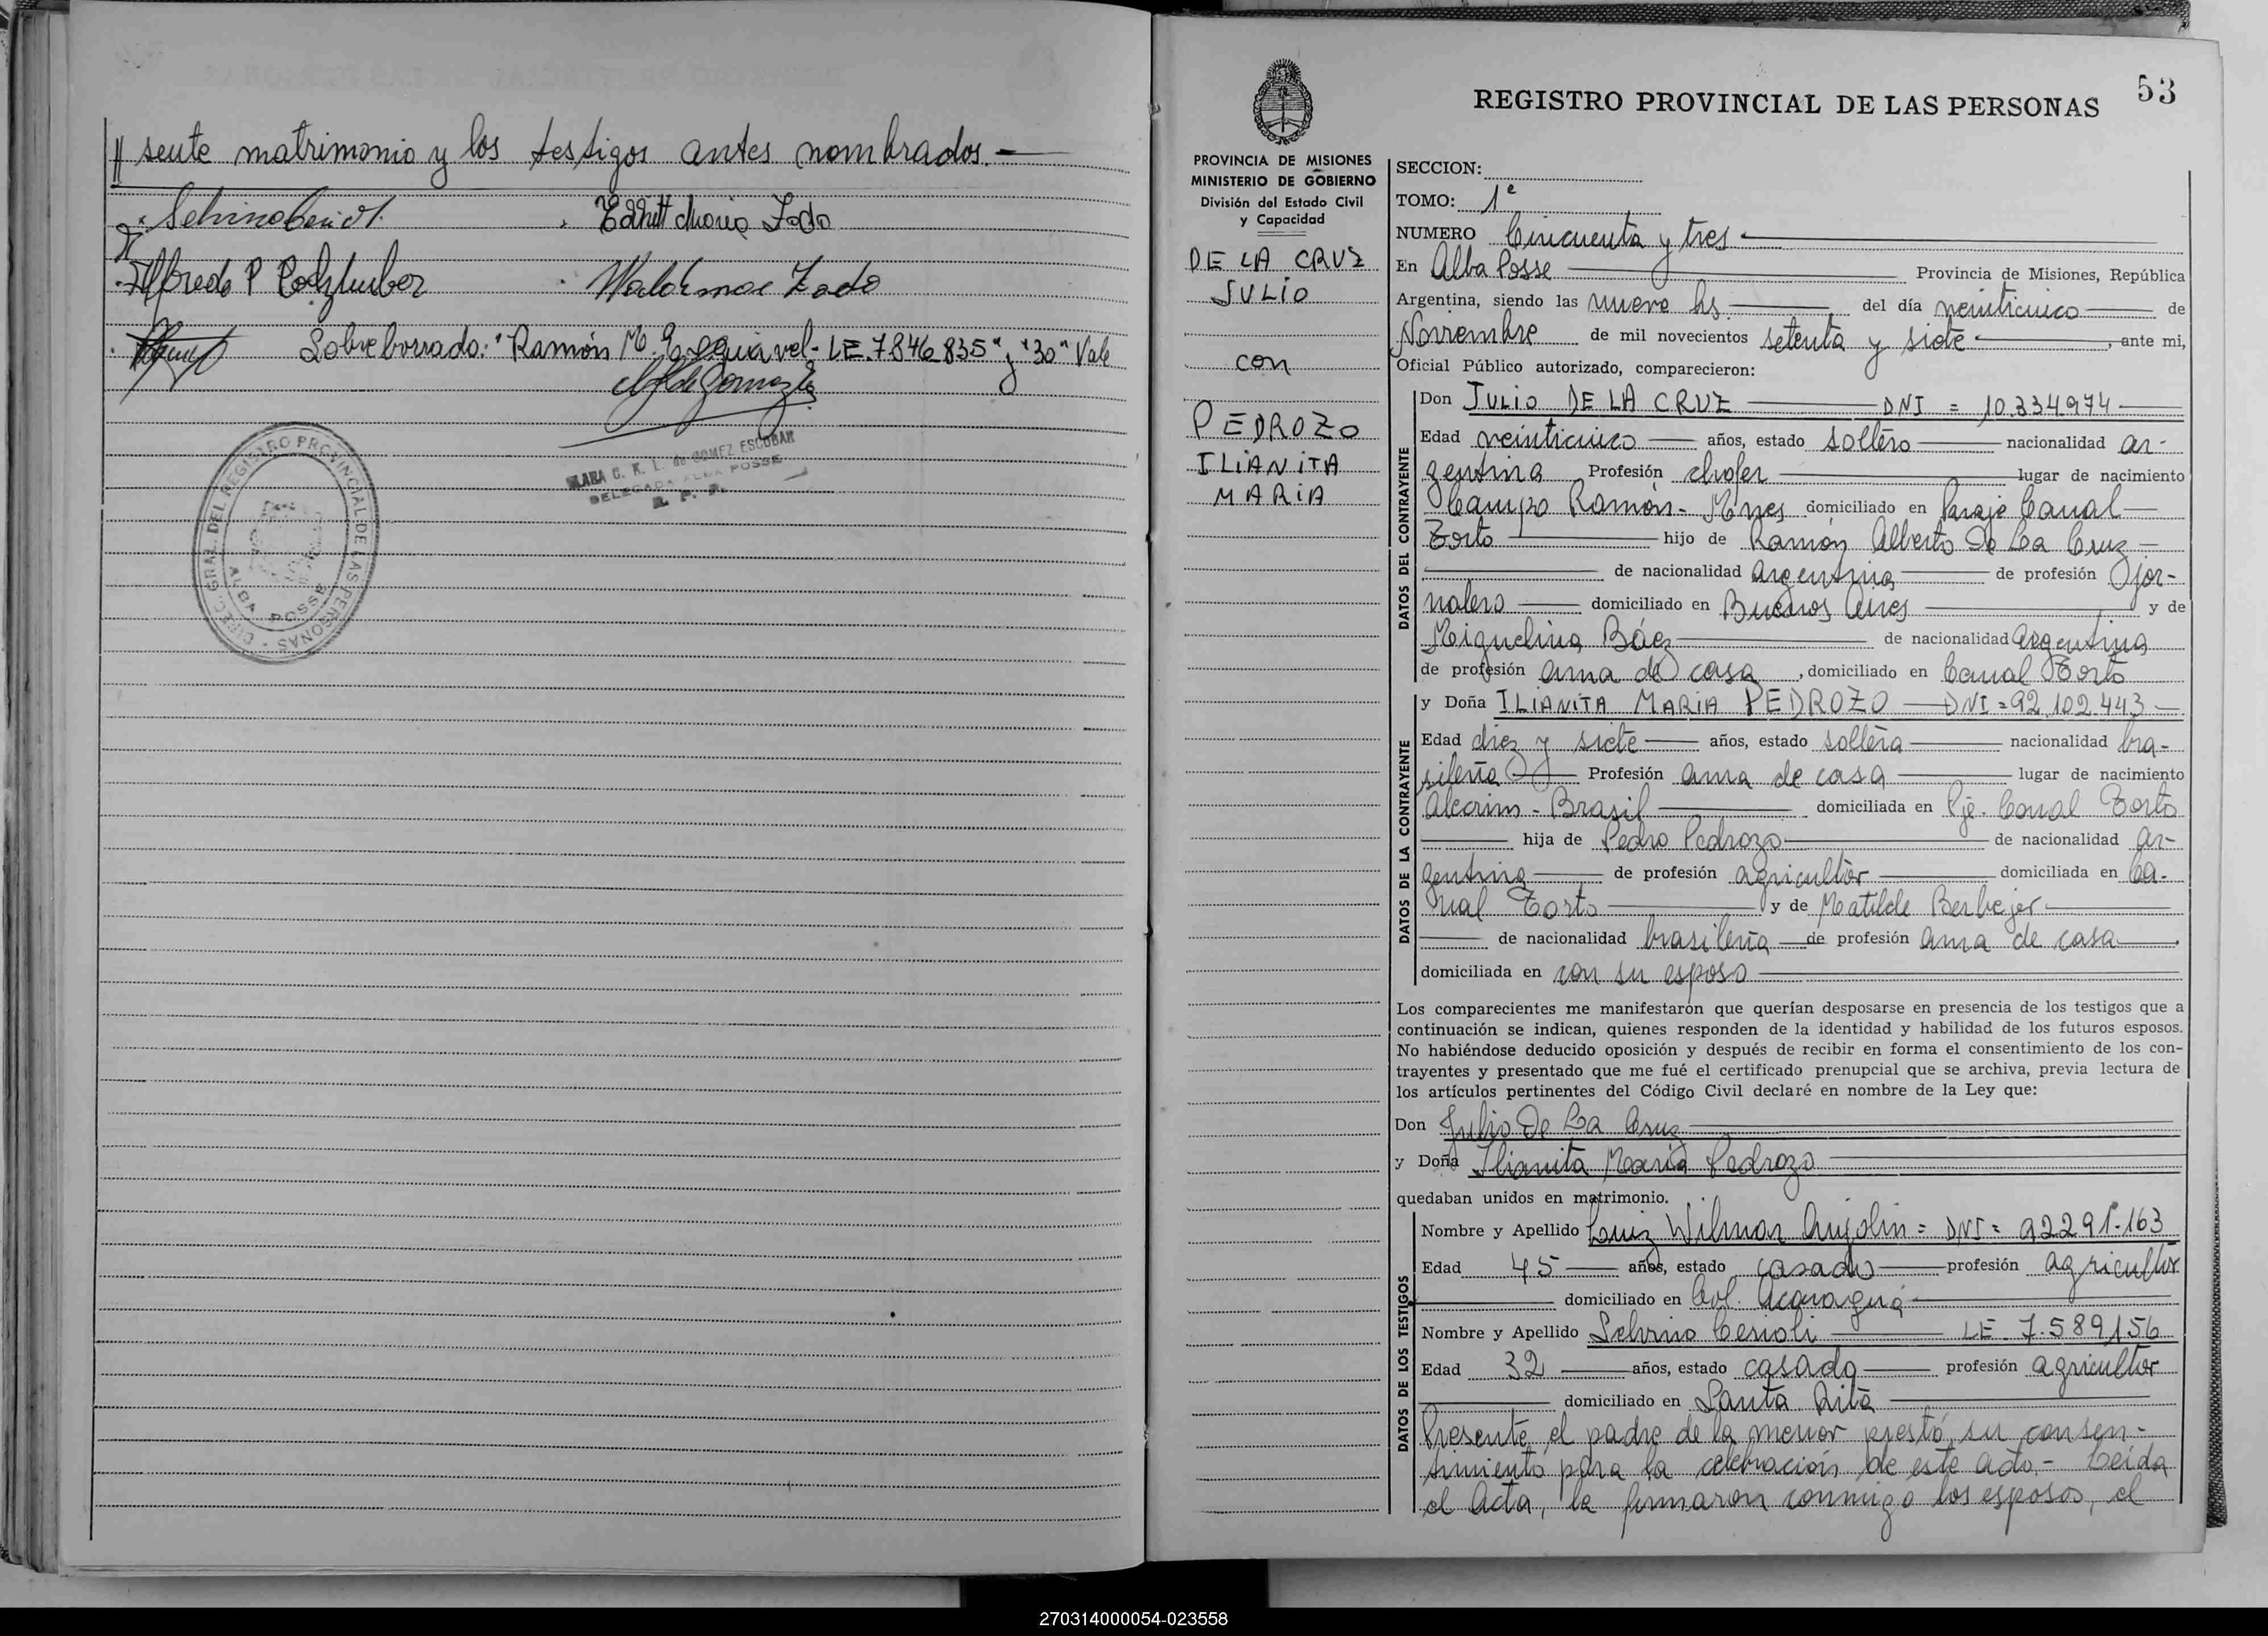 // sente matrimonio y los testigos antes nombrados.-
Alfredo P
Sobreborrado: "Ramón M. Esquivel - LE. 7846835" y "30" Vale
CLARA C. K. L. de GOMEZ ESCOBAR
DELEGADA ALBA POSSE
R. P. P.
DIREC. GRAL. DEL REGISTRO PROVINCIAL DE LAS PERSONAS
ALBA POSSE
53
REGISTRO PROVINCIAL DE LAS PERSONAS
PROVINCIA DE MISIONES
MINISTERIO DE GOBIERNO
División del Estado Civil
y Capacidad
DE LA CRUZ
JULIO
con
PEDROZO
ILIANITA
MARIA
SECCION:
TOMO: 1º
NUMERO Cincuenta y tres
En Alba Posse Provincia de Misiones, República
Argentina, siendo las nueve hs. del día veinticinco de
Noviembre de mil novecientos setenta y siete, ante mi,
Oficial Público autorizado, comparecieron:
DATOS DEL CONTRAYENTE
Don JULIO DE LA CRUZ DNI = 10.334.974
Edad veinticinco años, estado soltero nacionalidad ar-
gentina Profesión chofer lugar de nacimiento
Campo Ramón - Mnes domiciliado en Paraje Canal
Torto hijo de Ramón Alberto De La Cruz
de nacionalidad argentina de profesión jor-
nalero domiciliado en Buenos Aires y de
Miguelina Báez de nacionalidad argentina
de profesión ama de casa, domiciliado en Canal Torto
DATOS DE LA CONTRAYENTE
y Doña ILIANITA MARIA PEDROZO DNI = 92.102.443
Edad diez y siete años, estado soltera nacionalidad bra-
sileña Profesión ama de casa lugar de nacimiento
Alecrim - Brasil domiciliada en Pje. Canal Torto
hija de Pedro Pedrozo de nacionalidad ar-
gentina de profesión agricultor domiciliada en Ca-
nal Torto y de Matilde Berbejer
de nacionalidad brasileña de profesión ama de casa
domiciliada en con su esposo
Los comparecientes me manifestaron que querían desposarse en presencia de los testigos que a
continuación se indican, quienes responden de la identidad y habilidad de los futuros esposos.
No habiéndose deducido oposición y después de recibir en forma el consentimiento de los con-
trayentes y presentado que me fué el certificado prenupcial que se archiva, previa lectura de
los artículos pertinentes del Código Civil declaré en nombre de la Ley que:
Don Julio De La Cruz
y Doña Ilianita María Pedrozo
quedaban unidos en matrimonio.
DATOS DE LOS TESTIGOS
Nombre y Apellido Luiz Wilmar Anjolin = DNI = 92291.163
Edad 45 años, estado casado profesión agricultor
domiciliado en Col. Acaraguá
Nombre y Apellido Selvino Cerioli LE. 7.589156
Edad 32 años, estado casado profesión agricultor
domiciliado en Santa Rita
Presente el padre de la menor prestó su consen-
timiento para la celebración de este acto.- Leída
el Acta, la firmaron conmigo los esposos, el
270314000054-023558